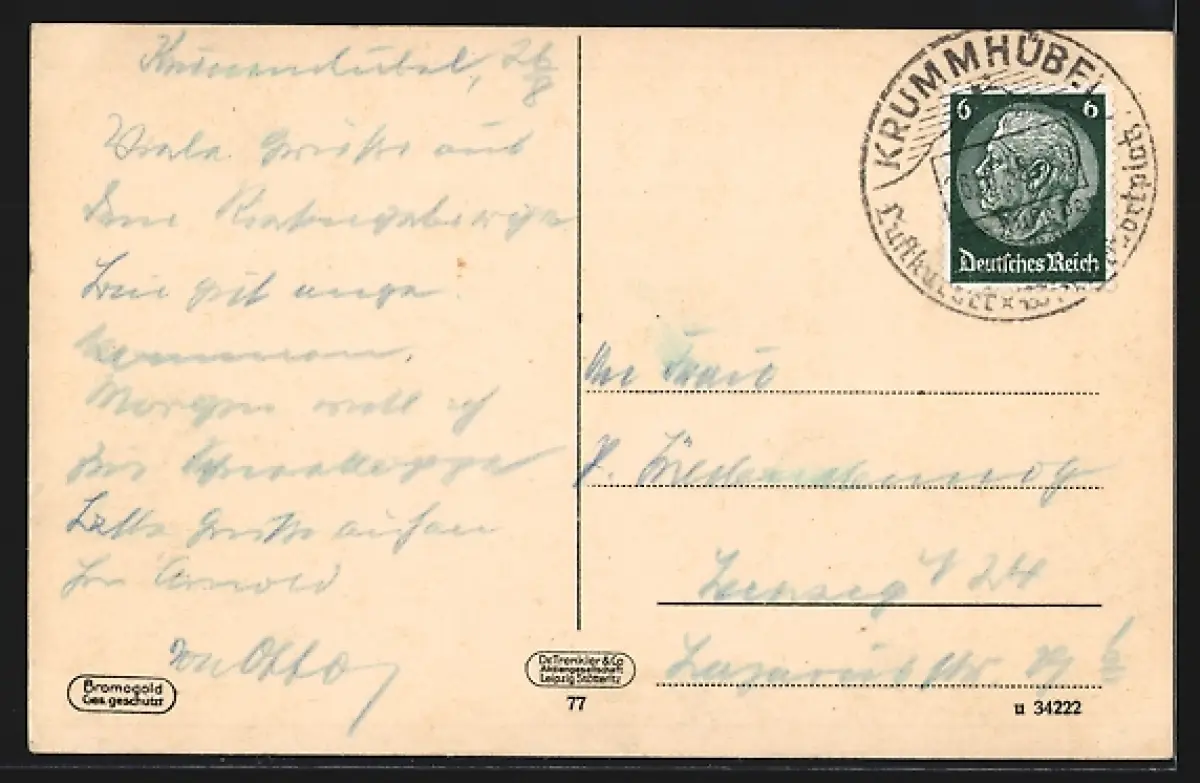 Krummhübel, 26/8
Viele Grüße aus
dem Riesengebirge
bin gut ange
kommen.
Morgen will ich
zur Schneekoppe
Grüße auch an
Arnold
von Otto
Bromogold
Ges. geschützt
Dr. Trenkler & Co
Aktiengesellschaft
Leipzig Stötteritz
77
KRUMMHÜBEL
Luftkurort
Sportplatz
6 6
Deutsches Reich
An Frau
Leipzig 24
u 34222